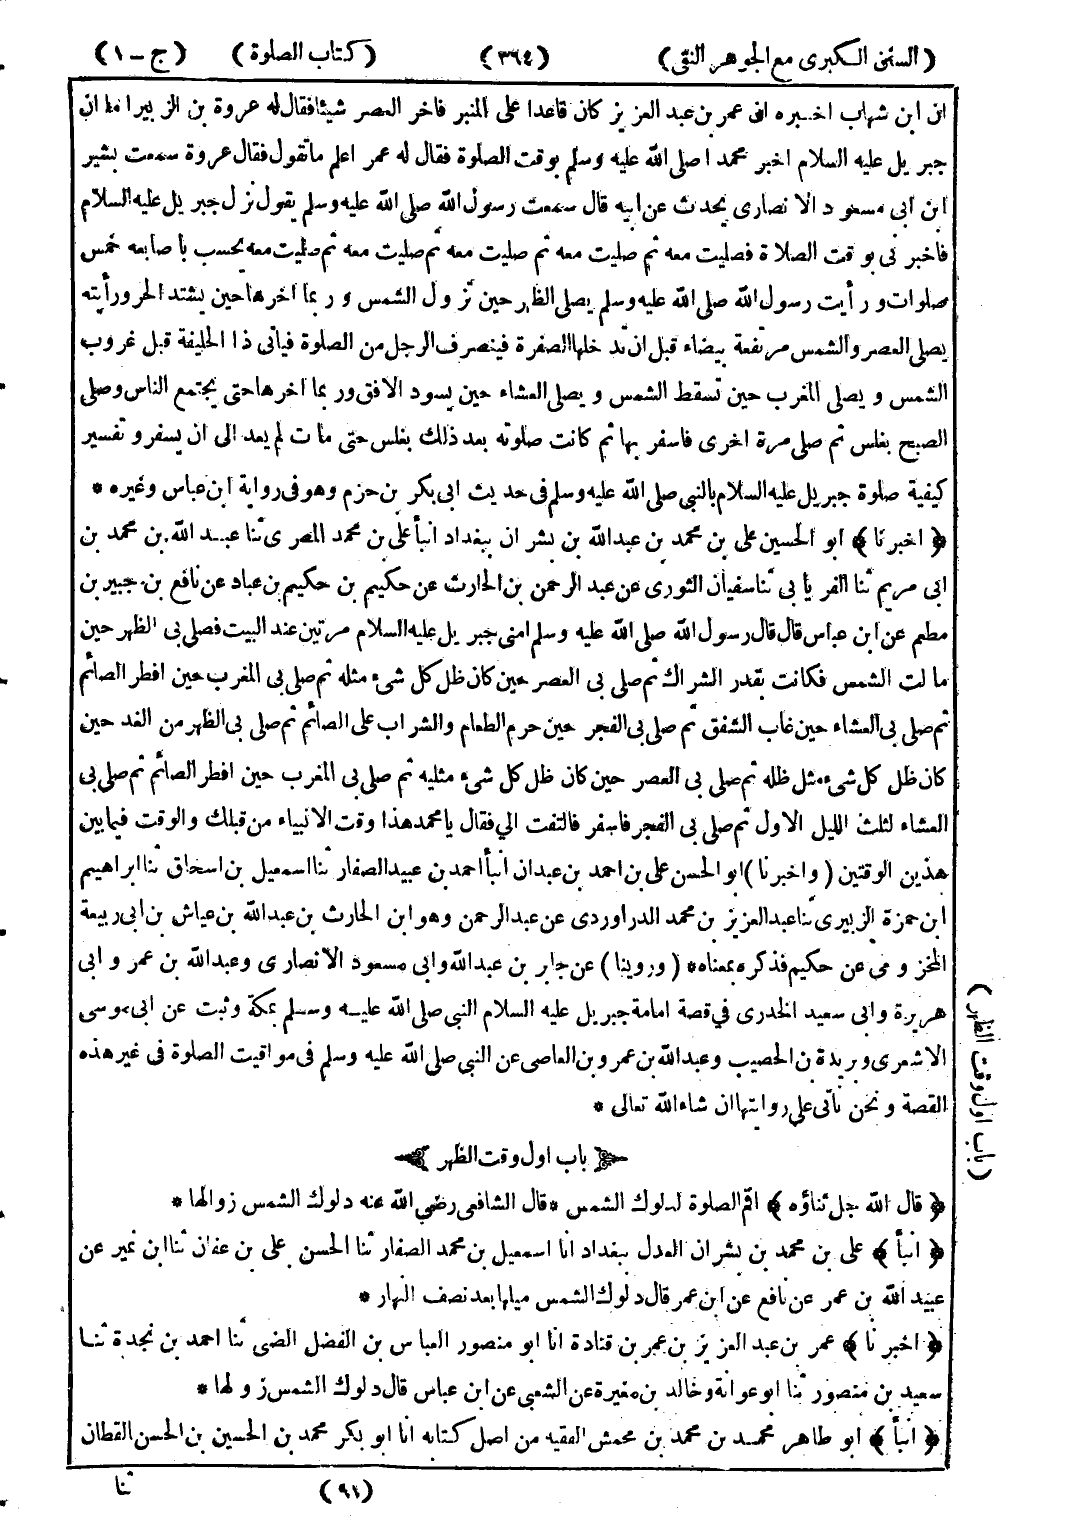 (السنن الكبرى مع الجوهر النقى) (٣٦٤) (كتاب الصلوة) (ج-١)
ان ابن شهاب اخبره ان عمر بن عبد العزيز كان قاعدا على المنبر فاخر العصر شيئا فقال له عروة بن الزبير اما ان
جبريل عليه السلام اخبر محمدا صلى الله عليه وسلم بوقت الصلوة فقال له عمر اعلم ما تقول فقال عروة سمعت بشير
ابن ابى مسعود الانصارى يحدث عن ابيه قال سمعت رسول الله صلى الله عليه وسلم يقول نزل جبريل عليه السلام
فأخبرنى بوقت الصلاة فصليت معه ثم صليت معه ثم صليت معه ثم صليت معه ثم صليت معه يحسب باصابعه خمس
صلوات ورأيت رسول الله صلى الله عليه وسلم يصلى الظهر حين تزول الشمس وربما اخرها حين يشتد الحر ورأيته
يصلى العصر والشمس مرتفعة بيضاء قبل ان تدخلها الصفرة فينصرف الرجل من الصلوة فيأتى ذا الحليفة قبل غروب
الشمس ويصلى المغرب حين تسقط الشمس ويصلى العشاء حين يسود الافق وربما اخرها حتى يجتمع الناس وصلى
الصبح بغلس ثم صلى مرة اخرى فاسفر بها ثم كانت صلوته بعد ذلك بغلس حتى مات لم يعد الى ان يسفر وتفسير
كيفية صلوة جبريل عليه السلام بالنبى صلى الله عليه وسلم فى حديث ابى بكر بن حزم وهو فى رواية ابن عباس وغيره *
﴿اخبرنا﴾ ابو الحسين على بن محمد بن عبدالله بن بشران ببغداد انبأ على بن محمد المصرى ثنا عبد الله بن محمد بن
ابى مريم ثنا الفريابى ثنا سفيان الثورى عن عبد الرحمن بن الحارث عن حكيم بن حكيم بن عباد عن نافع بن جبير بن
مطعم عن ابن عباس قال قال رسول الله صلى الله عليه وسلم امنى جبريل عليه السلام مرتين عند البيت فصلى بى الظهر حين
مالت الشمس فكانت بقدر الشراك ثم صلى بى العصر حين كان ظل كل شىء مثله ثم صلى بى المغرب حين افطر الصائم
ثم صلى بى العشاء حين غاب الشفق ثم صلى بى الفجر حين حرم الطعام والشراب على الصائم ثم صلى بى الظهر من الغد حين
كان ظل كل شىء مثل ظله ثم صلى بى العصر حين كان ظل كل شىء مثليه ثم صلى بى المغرب حين افطر الصائم ثم صلى بى
العشاء لثلث الليل الاول ثم صلى بى الفجر فاسفر فالتفت الي فقال يا محمد هذا وقت الانبياء من قبلك والوقت فيما بين
هذين الوقتين (واخبرنا) ابو الحسن على بن احمد بن عبدان انبأ احمد بن عبيد الصفار ثنا اسمعيل بن اسحاق ثنا ابراهيم
ابن حمزة الزبيرى ثنا عبد العزيز بن محمد الدراوردى عن عبد الرحمن وهو ابن الحارث بن عبد الله بن عياش بن ابى ربيعة
المخزومى عن حكيم فذكره بمعناه * (وروينا) عن جابر بن عبد الله وابى مسعود الانصارى وعبدالله بن عمر وابى
هريرة وابى سعيد الخدرى في قصة امامة جبريل عليه السلام النبى صلى الله عليه وسلم بمكة وثبت عن ابى موسى
الاشعرى وبريدة بن الحصيب وعبدالله بن عمرو بن العاصى عن النبى صلى الله عليه وسلم فى مواقيت الصلوة فى غير هذه
القصة ونحن نأتى على روايتها ان شاء الله تعالى *
باب اول وقت الظهر
﴿قال الله جل ثناؤه﴾ اقم الصلوة لدلوك الشمس * قال الشافعى رضي الله عنه دلوك الشمس زوالها *
﴿انبأ﴾ على بن محمد بن بشران العدل ببغداد انا اسمعيل بن محمد الصفار ثنا الحسن على بن عفان ثنا ابن نمير عن
عبيد الله بن عمر عن نافع عن ابن عمر قال دلوك الشمس ميلها بعد نصف النهار *
﴿اخبرنا﴾ عمر بن عبد العزيز بن عمر بن قتادة انا ابو منصور العباس بن الفضل الضى ثنا احمد بن نجدة ثنا
سعيد بن منصور ثنا ابو عوانة وخالد بن مغيرة عن الشعبى عن ابن عباس قال دلوك الشمس زولها *
﴿انبأ﴾ ابو طاهر محمد بن محمد بن محمش الفقيه من اصل كتابه انا ابو بكر محمد بن الحسين بن الحسن القطان
(٩١) ثنا
(باب اول وقت الظهر)